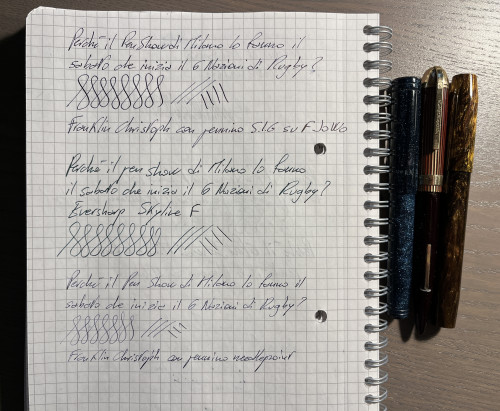 Perché il Pen Show di Milano lo fanno il
sabato che inizia il 6 Nazioni di Rugby?
Franklin Christoph con pennino S.I.G su F JoWo
Perché il pen show di Milano lo fanno
il sabato che inizia il 6 Nazioni di Rugby?
Eversharp Skyline F
Perché il Pen Show di Milano lo fanno il
sabato che inizia il 6 Nazioni di Rugby?
Franklin Christoph con pennino needlepoint